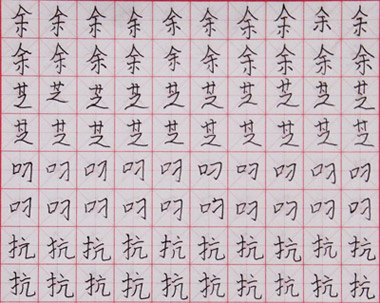 余余余余余余余余余余
余余余余余余余余余余
芝芝芝芝芝芝芝芝芝芝
芝芝芝芝芝芝芝芝芝芝
叼叼叼叼叼叼叼叼叼叼
叼叼叼叼叼叼叼叼叼叼
抗抗抗抗抗抗抗抗抗抗
抗抗抗抗抗抗抗抗抗抗